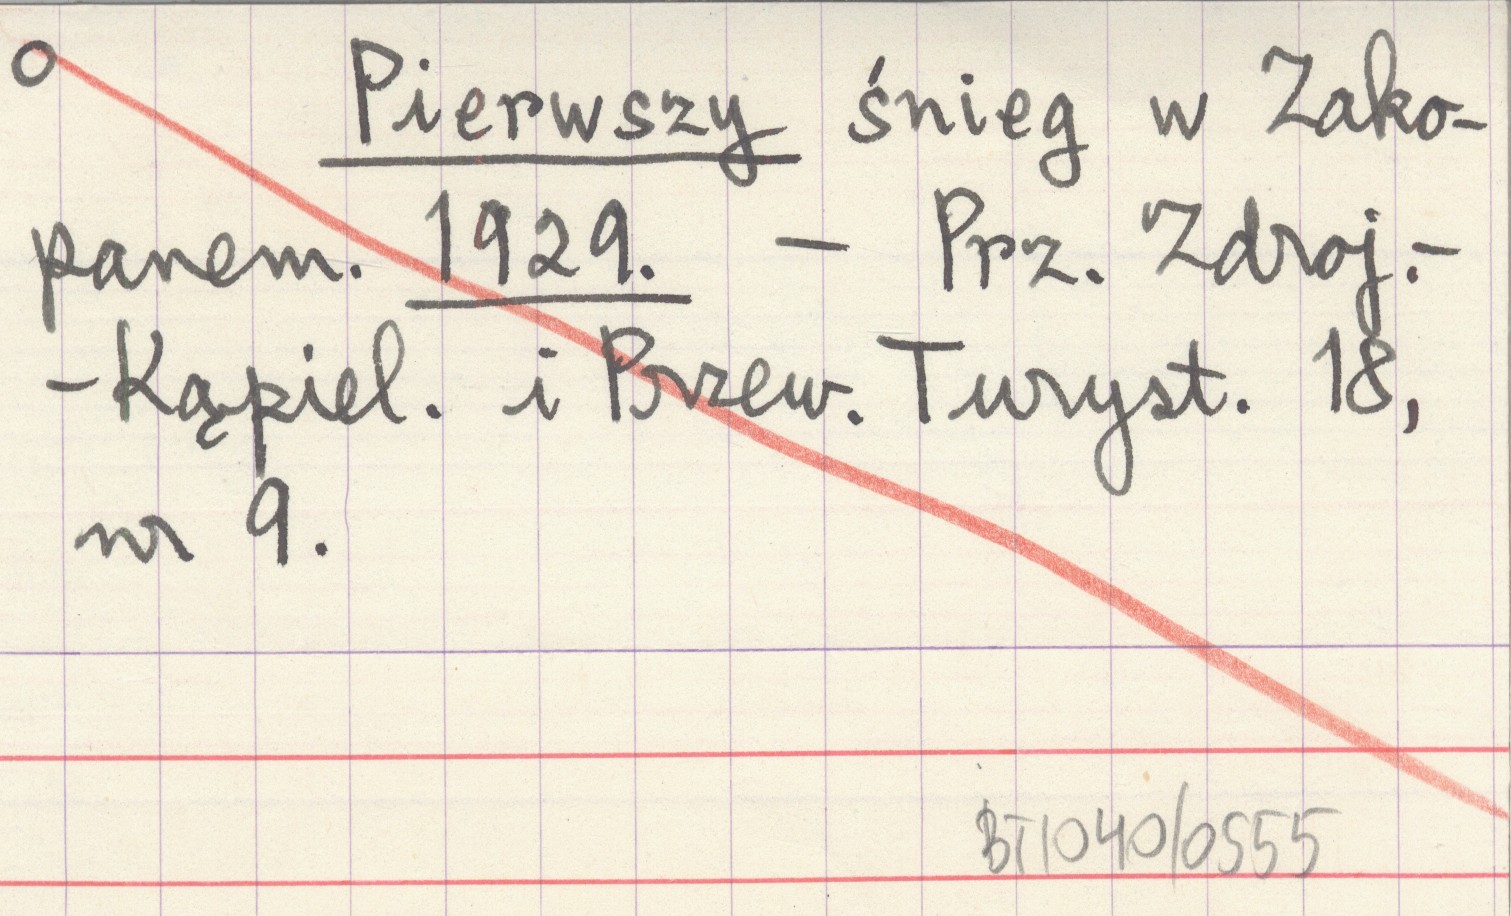 O Pierwszy śnieg w Zako-
panem. 1929. – Prz. Zdroj.-
-Kąpiel. i Przew. Turyst. 18,
nr 9.
BT1040/0555